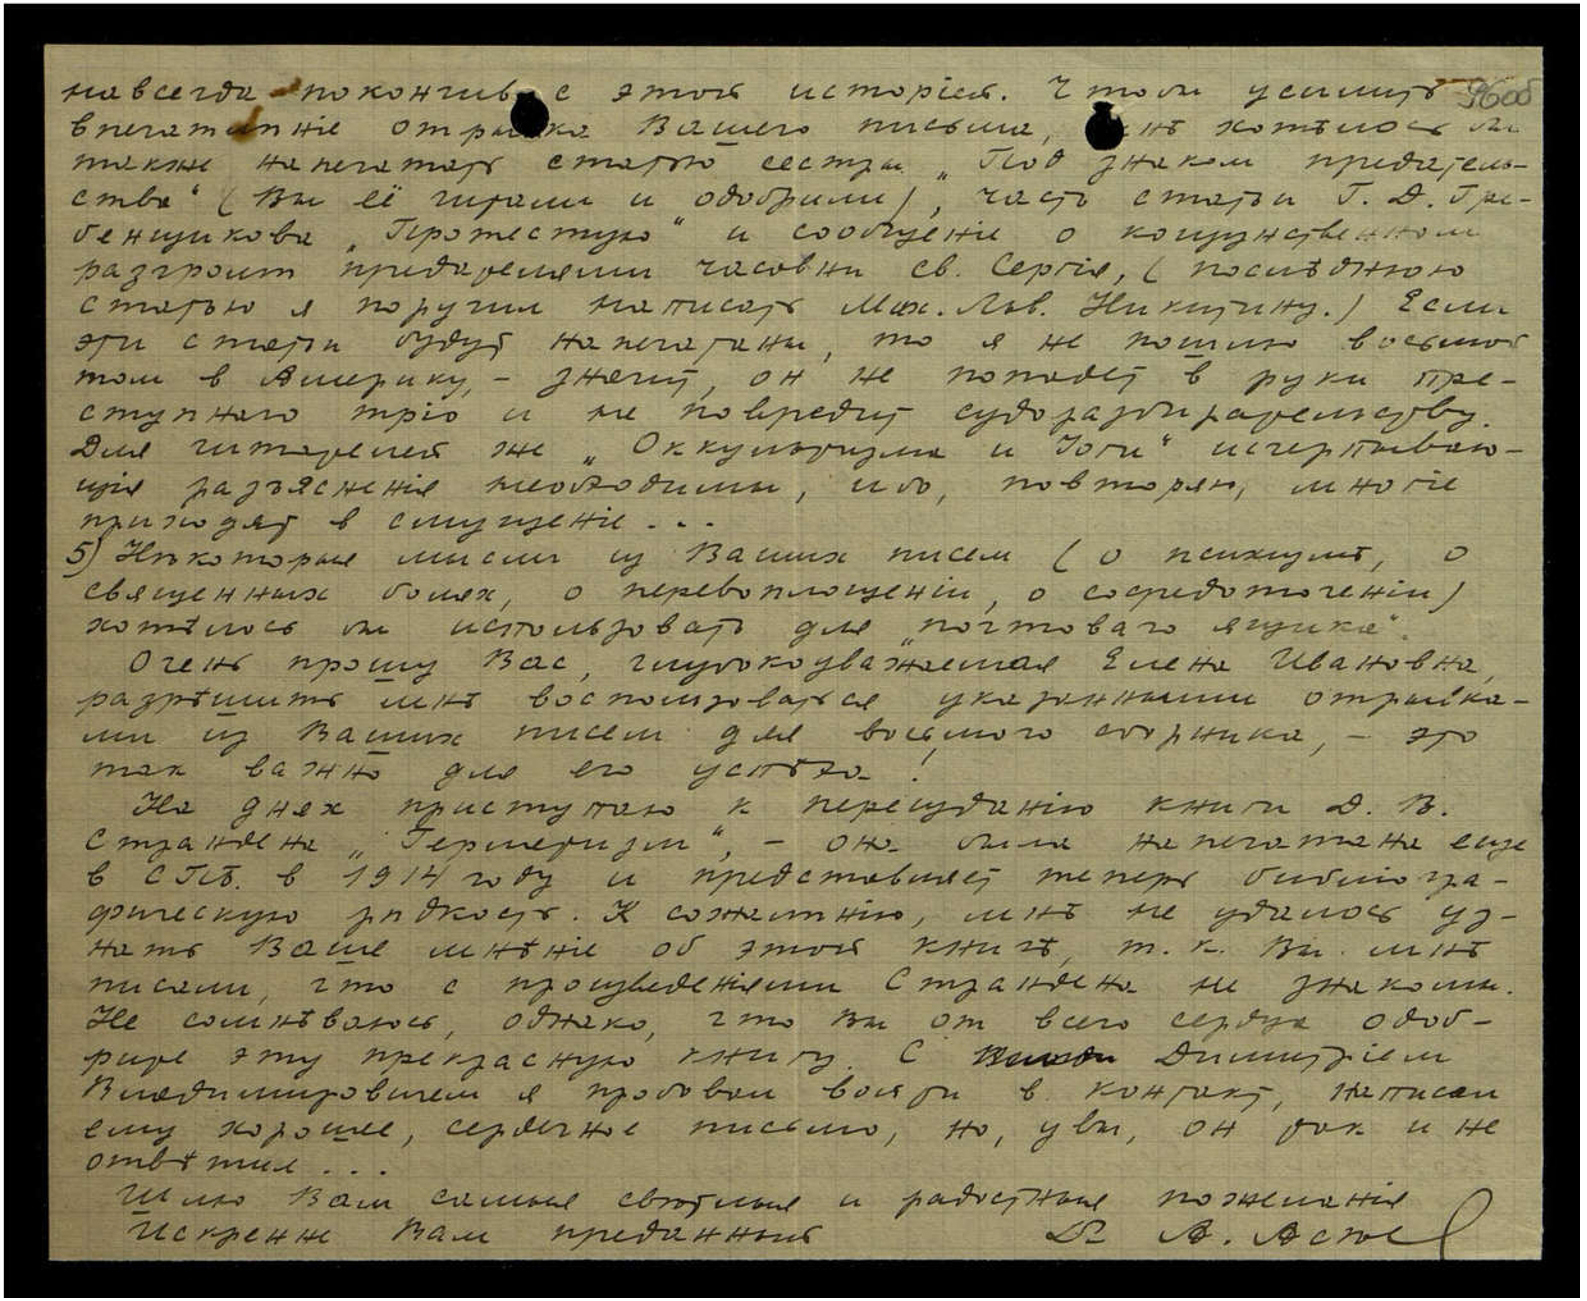 96об
навсегда покончив с этой исторіей. Чтобы усилить
впечатлѣніе отрывка Вашего письма, мнѣ хотѣлось бы
также напечатать статью сестры „Под знаком предатель-
ства“ (Вы её читали и одобрили), часть статьи Г. Д. Гре-
бенщикова „Протестую“ и сообщеніе о кощунственном
разгромѣ предателями часовни св. Сергія, (последнюю
статью я поручил написать Мих. Льв. Никитину.) Если
эти статьи будут напечатаны, то я не пошлю восьмой
том в Америку, – значит, он не попадет в руки пре-
ступнаго тріо и не повредит судоразбирательству.
Для читателей же „Оккультизма и Іоги“ исчерпываю-
щія разъясненія необходимы, ибо, повторяю, многіе
приходят в смущеніе...
5) Нѣкоторые мысли из Ваших писем (о психизмѣ, о
священных болях, о перевоплощеніи, о сосредоточеніи)
хотѣлось бы использовать для „почтоваго ящика“.
Очень прошу Вас, глубокоуважаемая Елена Ивановна,
разрѣшить мнѣ воспользоваться указанными отрывка-
ми из Ваших писем для восьмого сборника, – это
так важно для его успѣха!
На днях приступаю к переизданію книги Д. В.
Страндена „Герметизм“, – она была напечатана еще
в СПб. в 1914 году и представляет теперь библіогра-
фическую рѣдкость. К сожалѣнію, мнѣ не удалось уз-
нать Ваше мнѣніе об этой книгѣ, т. к. Вы мнѣ
писали, что с произведеніями Страндена не знакомы.
Не сомнѣваюсь, однако, что Вы от всего сердца одоб-
рите эту прекрасную книгу. С Димитріем
Владимировичем я пробовал войти в контакт, написал
ему хорошее, сердечное письмо, но, увы, он так и не
отвѣтил...
Шлю Вам самые свѣтлые и радостные пожеланія
Искренне Вам преданный Dr А. Асѣев